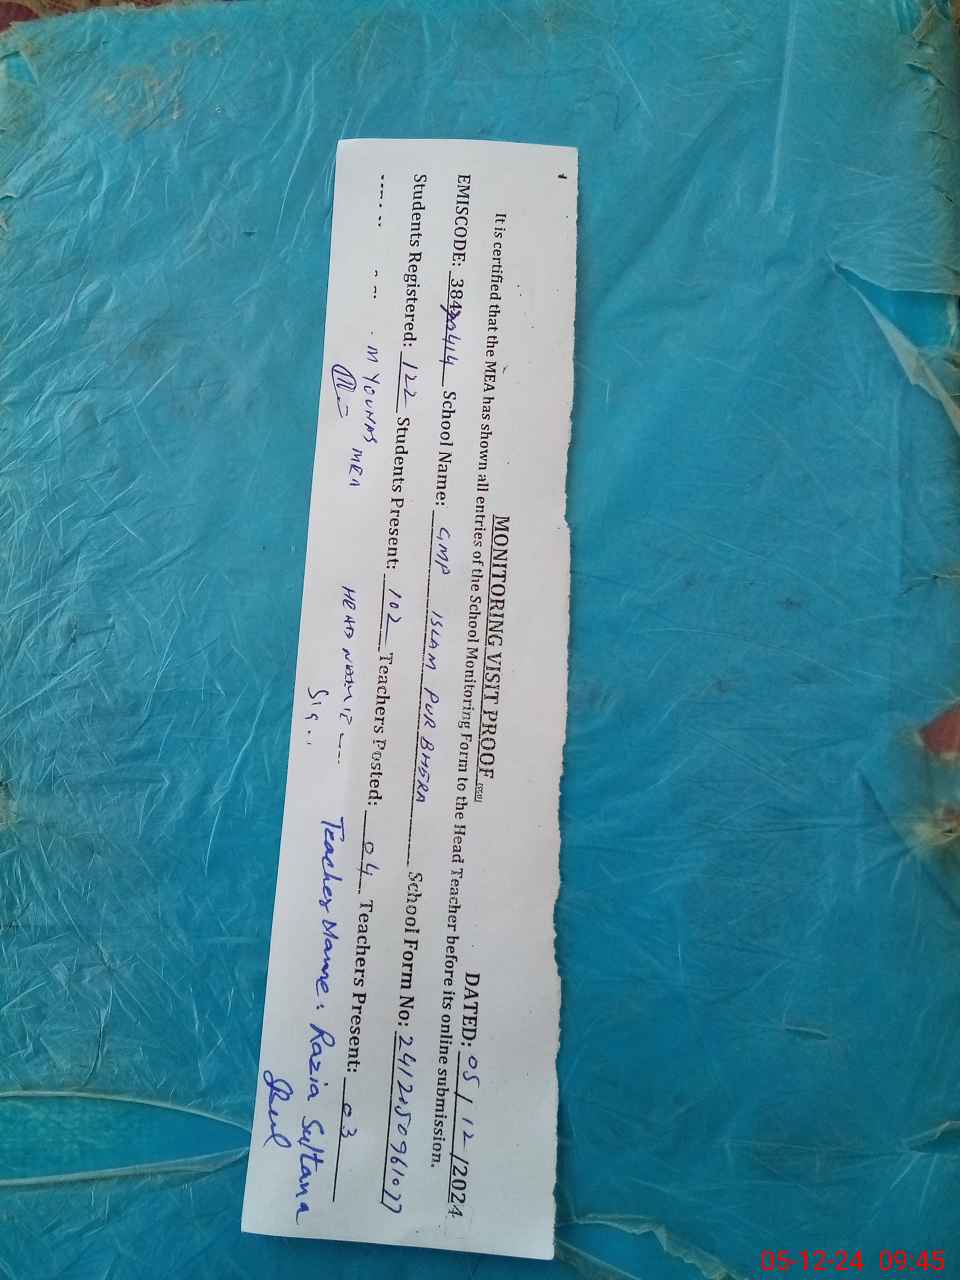 MONITORING VISIT PROOF
DATED: 05 / 12 /2024
It is certified that the MEA has shown all entries of the School Monitoring Form to the Head Teacher before its online submission.
EMISCODE: School Name: GMP ISLAM PUR BHERA School Form No:
Students Registered: 122 Students Present: 102 Teachers Posted: 04 Teachers Present: 03
M YOUNAS
Teacher Name: Razia Sultana
05-12-24 09:45